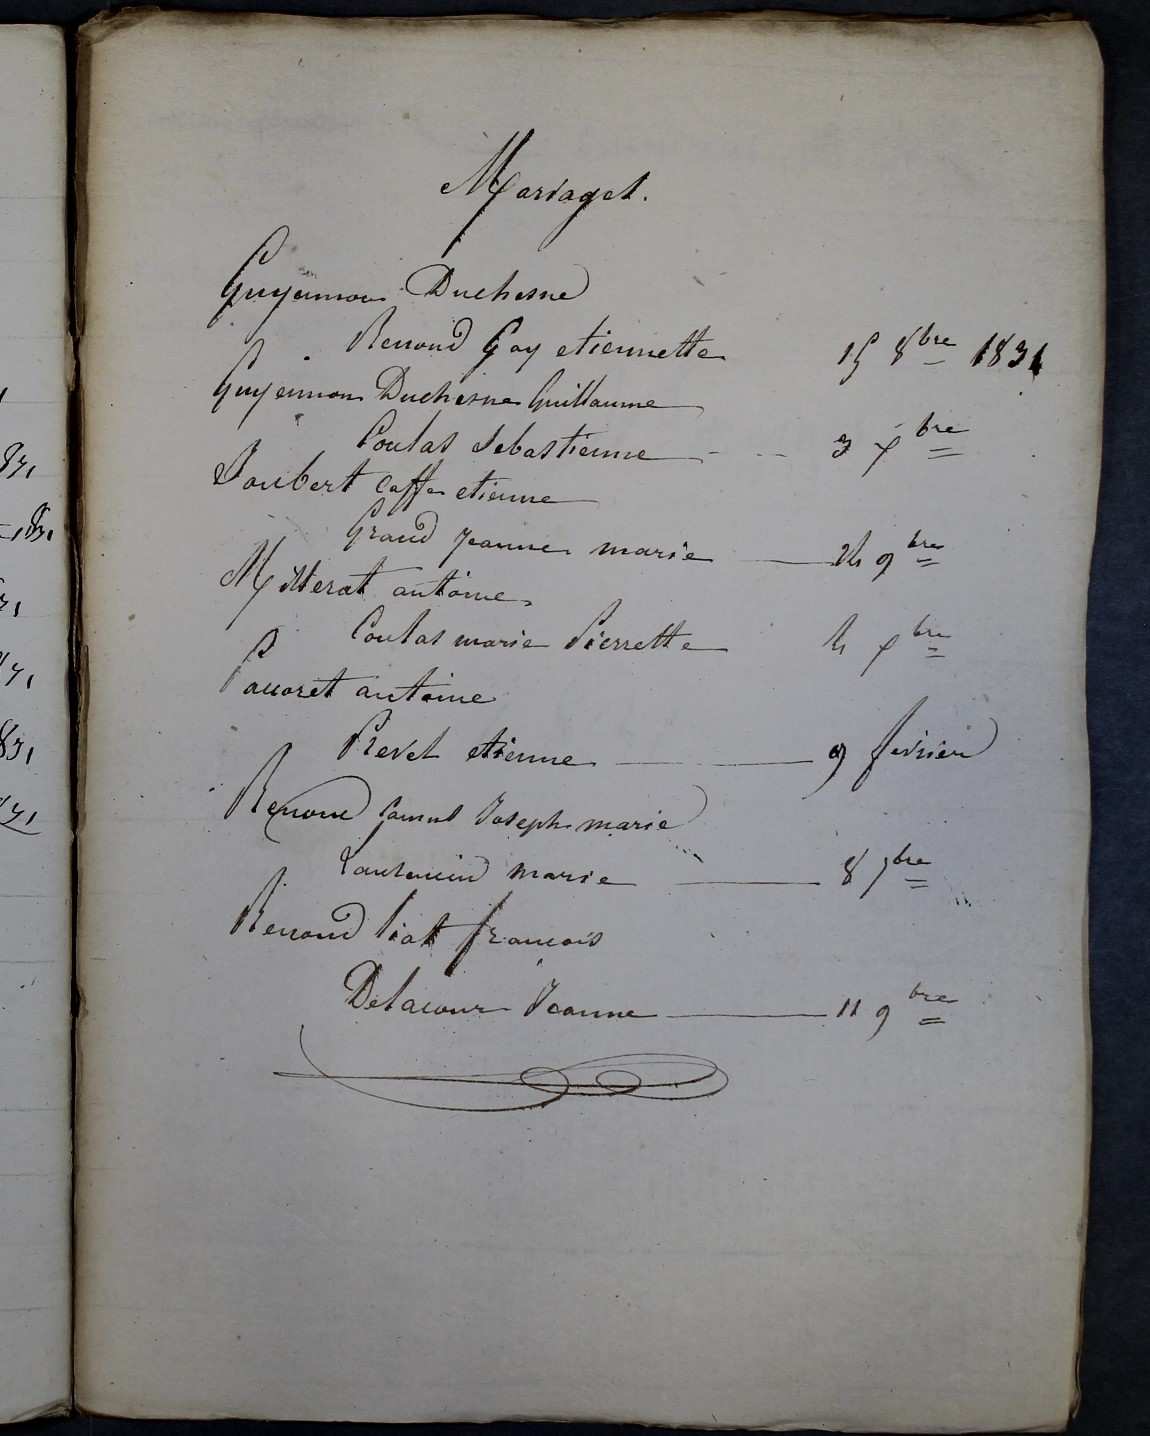 Mariages.
Guyennon Duchesne
Renoud Goy etiennette 15 8bre 1831
Guyennon Duchesne Guillaume
Coulas Sebastienne 3 xbre
Joubert Caffe etienne
Grand Jeanne marie 24 9bre
Mitterat antoine
Coulas marie Pierrette 4 xbre
Pauoret antoine
Revel etienne 9 fevrier
Renoud Joseph marie
marie 8 7bre
Renoud liat francois
Delacour Jeanne 11 9bre